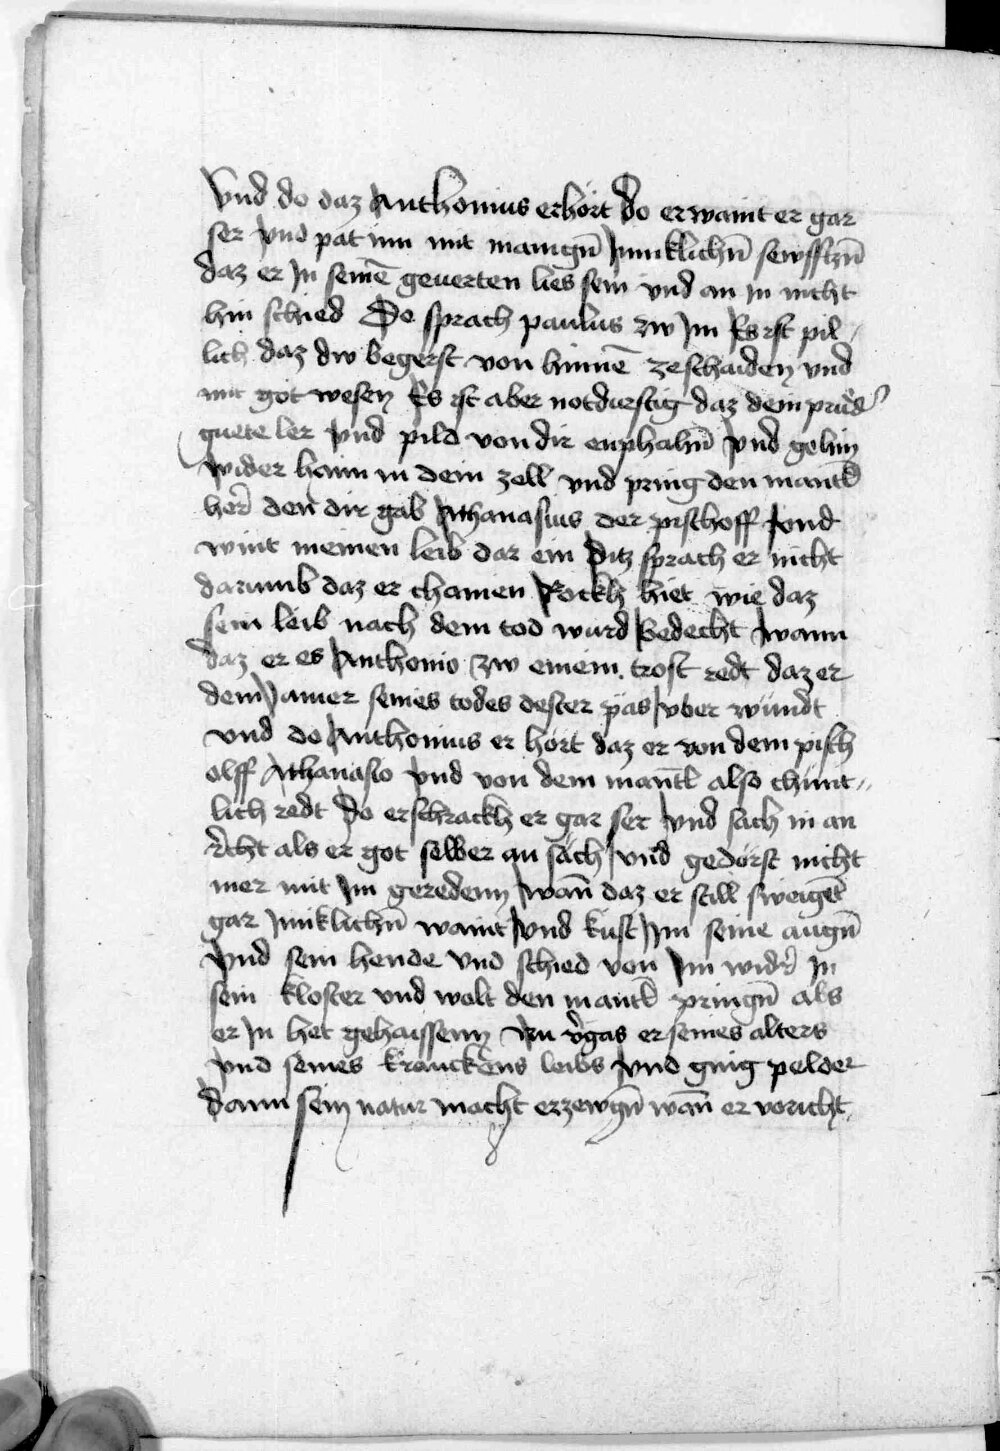 Vnd do daz Anthonius erhört do erwaint er gar
ser vnd pat inn mit manign̄ Jnniklichn̄ sewfftzn̄
daz er Jn seinē geuerten lies sein vnd an in nicht
hin schied Do sprach paulus zw Jm Es ist pil
lich daz dw begerst von hinnē zeschaiden vnd
mit got wesen Es ist aber notdurftig daz dein prüd̾
guete ler vnd pild von dir enphahn̄ vnd gehin
wider haim in dein zell vnd pring den mantl
her den dir gab Athanasius der pischoff vnd
wint meinen leib dar ein Ditz sprach er nicht
darumb daz er chainen Rockh hiet wie daz
sein leib nach dem tod wurd Bedecht wann
daz er es Anthonio zw einem trost redt daz er
dem Jamer seines todes dester päs vber wündt
vnd do Anthonius er hört daz er von dem pisch
olff Athanasio vnd von dem mantl also chünt
lich redt do erschrackh er gar ser vnd sach in an
recht als er got selber an säch vnd gedörst nicht
mer mit Jm geredenn wan̄ daz er still sweigēt
gar Jniklichn̄ waint vnd kust Jm seine augn̄
vnd sein hende vnd schied von Jm wid̾ Jn
sein kloster vnd wolt den mantl pringn̄ als
er Jn het gehaissenn vn v̾gas er seines alters
vnd seines kranckens leibs vnd ging pelder
dann sein natur macht erzewgn̄ wan̄ er voricht